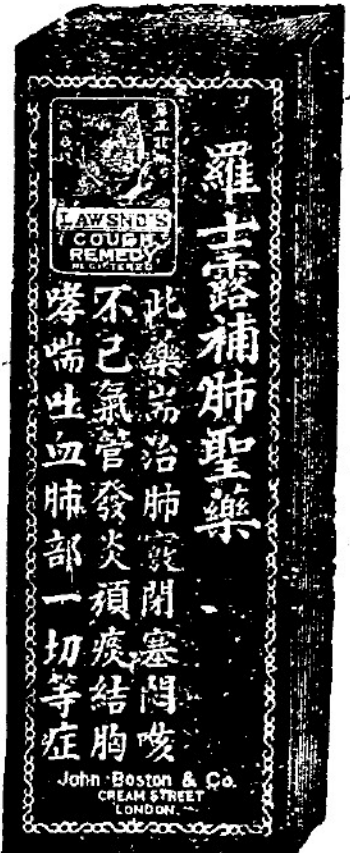 羅士露補肺聖藥
LAWSND'S
COUGH
REMEDY
REGISTERED
此藥耑治肺竅閉塞悶咳
不已氣管發炎頑痰結胸
哮喘吐血肺部一切等症
John Boston & Co.
CREAM STREET
LONDON.